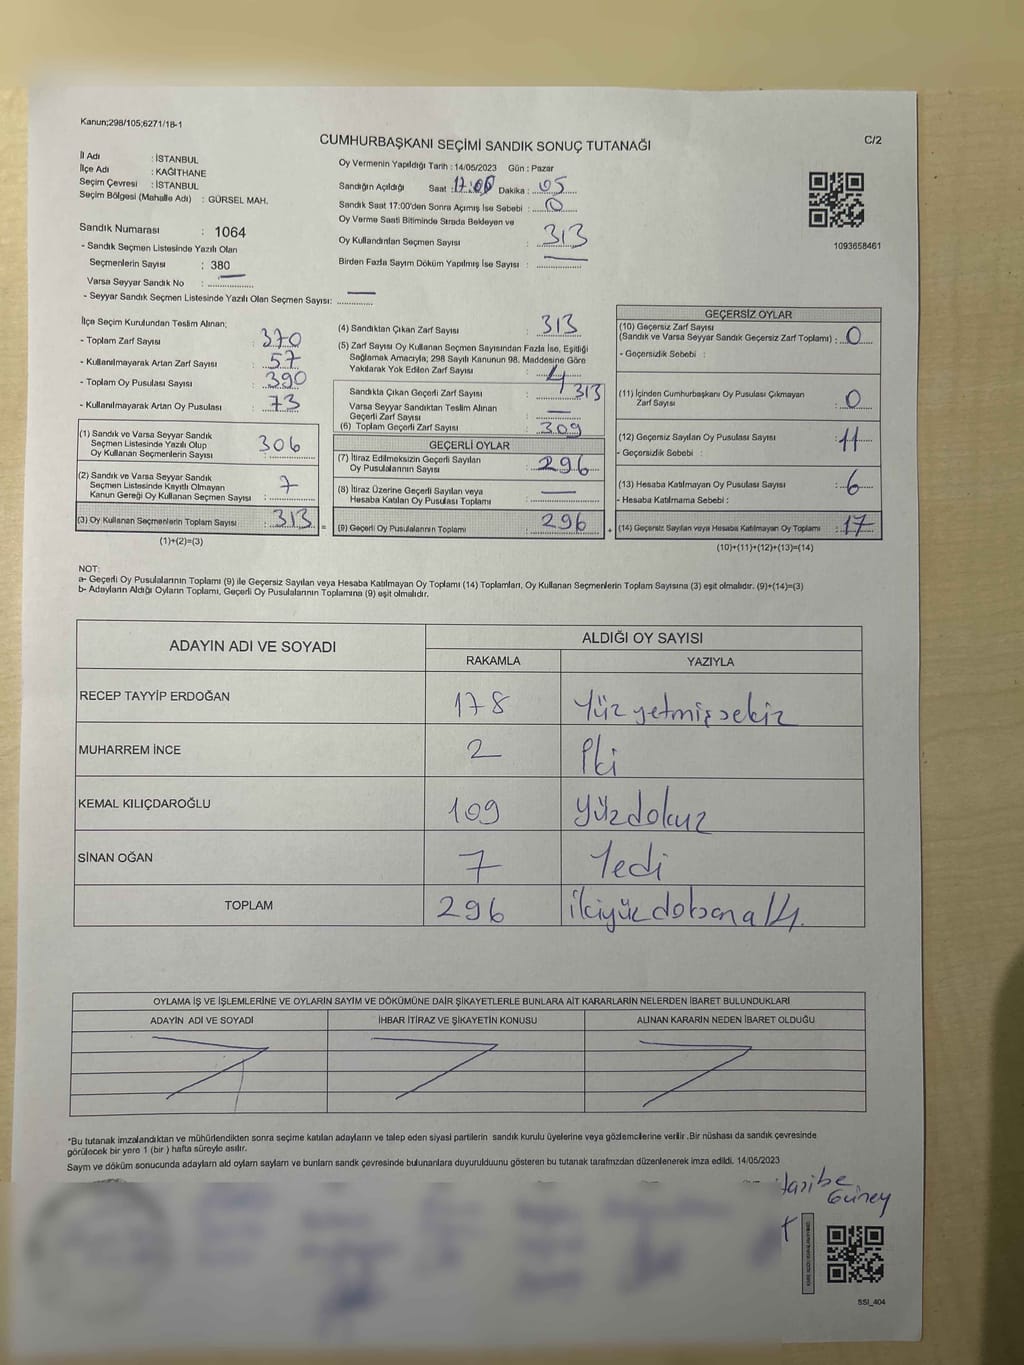 Kanun;298/105;6271/18-1
CUMHURBAŞKANI SEÇİMİ SANDIK SONUÇ TUTANAĞI
C/2
İl Adı : İSTANBUL
İlçe Adı : KAĞITHANE
Seçim Çevresi : İSTANBUL
Seçim Bölgesi (Mahalle Adı) : GÜRSEL MAH.
Sandık Numarası : 1064
- Sandık Seçmen Listesinde Yazılı Olan
Seçmenlerin Sayısı : 380
Varsa Seyyar Sandık No : —
- Seyyar Sandık Seçmen Listesinde Yazılı Olan Seçmen Sayısı: —
Oy Vermenin Yapıldığı Tarih : 14/05/2023 Gün : Pazar
Sandığın Açıldığı Saat : 17:00 Dakika : 05
Sandık Saat 17:00'den Sonra Açımış İse Sebebi : 0
Oy Verme Saati Bitiminde Sırada Bekleyen ve
Oy Kullandırılan Seçmen Sayısı : 313
Birden Fazla Sayım Döküm Yapılmış İse Sayısı : —
1093658461
İlçe Seçim Kurulundan Teslim Alınan;
- Toplam Zarf Sayısı : 370
- Kullanılmayarak Artan Zarf Sayısı : 57
- Toplam Oy Pusulası Sayısı : 390
- Kullanılmayarak Artan Oy Pusulası : 73
(1) Sandık ve Varsa Seyyar Sandık
Seçmen Listesinde Yazılı Olup
Oy Kullanan Seçmenlerin Sayısı : 306
(2) Sandık ve Varsa Seyyar Sandık
Seçmen Listesinde Kayıtlı Olmayan
Kanun Gereği Oy Kullanan Seçmen Sayısı : 7
(3) Oy Kullanan Seçmenlerin Toplam Sayısı : 313 =
(1)+(2)=(3)
(4) Sandıktan Çıkan Zarf Sayısı : 313
(5) Zarf Sayısı Oy Kullanan Seçmen Sayısından Fazla İse, Eşitliği
Sağlamak Amacıyla; 298 Sayılı Kanunun 98. Maddesine Göre
Yakılarak Yok Edilen Zarf Sayısı : 4
Sandıkta Çıkan Geçerli Zarf Sayısı : 313
Varsa Seyyar Sandıktan Teslim Alınan
Geçerli Zarf Sayısı : —
(6) Toplam Geçerli Zarf Sayısı : 309
GEÇERLİ OYLAR
(7) İtiraz Edilmeksizin Geçerli Sayılan
Oy Pusulalarının Sayısı : 296
(8) İtiraz Üzerine Geçerli Sayılan veya
Hesaba Katılan Oy Pusulası Toplamı : —
(9) Geçerli Oy Pusulalarının Toplamı : 296 +
GEÇERSİZ OYLAR
(10) Geçersiz Zarf Sayısı
(Sandık ve Varsa Seyyar Sandık Geçersiz Zarf Toplamı) : 0
- Geçersizlik Sebebi :
(11) İçinden Cumhurbaşkanı Oy Pusulası Çıkmayan
Zarf Sayısı : 0
(12) Geçersiz Sayılan Oy Pusulası Sayısı : 11
- Geçersizlik Sebebi :
(13) Hesaba Katılmayan Oy Pusulası Sayısı : 6
- Hesaba Katılmama Sebebi :
(14) Geçersiz Sayılan veya Hesaba Katılmayan Oy Toplamı : 17
(10)+(11)+(12)+(13)=(14)
NOT:
a- Geçerli Oy Pusulalarının Toplamı (9) ile Geçersiz Sayılan veya Hesaba Katılmayan Oy Toplamı (14) Toplamları, Oy Kullanan Seçmenlerin Toplam Sayısına (3) eşit olmalıdır. (9)+(14)=(3)
b- Adayların Aldığı Oyların Toplamı, Geçerli Oy Pusulalarının Toplamına (9) eşit olmalıdır.
ADAYIN ADI VE SOYADI
ALDIĞI OY SAYISI
RAKAMLA YAZIYLA
RECEP TAYYİP ERDOĞAN 178 Yüz yetmiş sekiz
MUHARREM İNCE 2 İki
KEMAL KILIÇDAROĞLU 109 Yüzdokuz
SİNAN OĞAN 7 Yedi
TOPLAM 296 ikiyüz doksan altı.
OYLAMA İŞ VE İŞLEMLERİNE VE OYLARIN SAYIM VE DÖKÜMÜNE DAİR ŞİKAYETLERLE BUNLARA AİT KARARLARIN NELERDEN İBARET BULUNDUKLARI
ADAYIN ADI VE SOYADI İHBAR İTİRAZ VE ŞİKAYETİN KONUSU ALINAN KARARIN NEDEN İBARET OLDUĞU
*Bu tutanak imzalandıktan ve mühürlendikten sonra seçime katılan adayların ve talep eden siyasi partilerin sandık kurulu üyelerine veya gözlemcilerine verilir. Bir nüshası da sandık çevresinde
görülecek bir yere 1 (bir ) hafta süreyle asılır.
Sayım ve döküm sonucunda adayların ald oyların sayları ve bunların sandk çevresinde bulunanlara duyurulduunu gösteren bu tutanak tarafmzdan düzenlenerek imza edildi. 14/05/2023
Güney
SSI_404